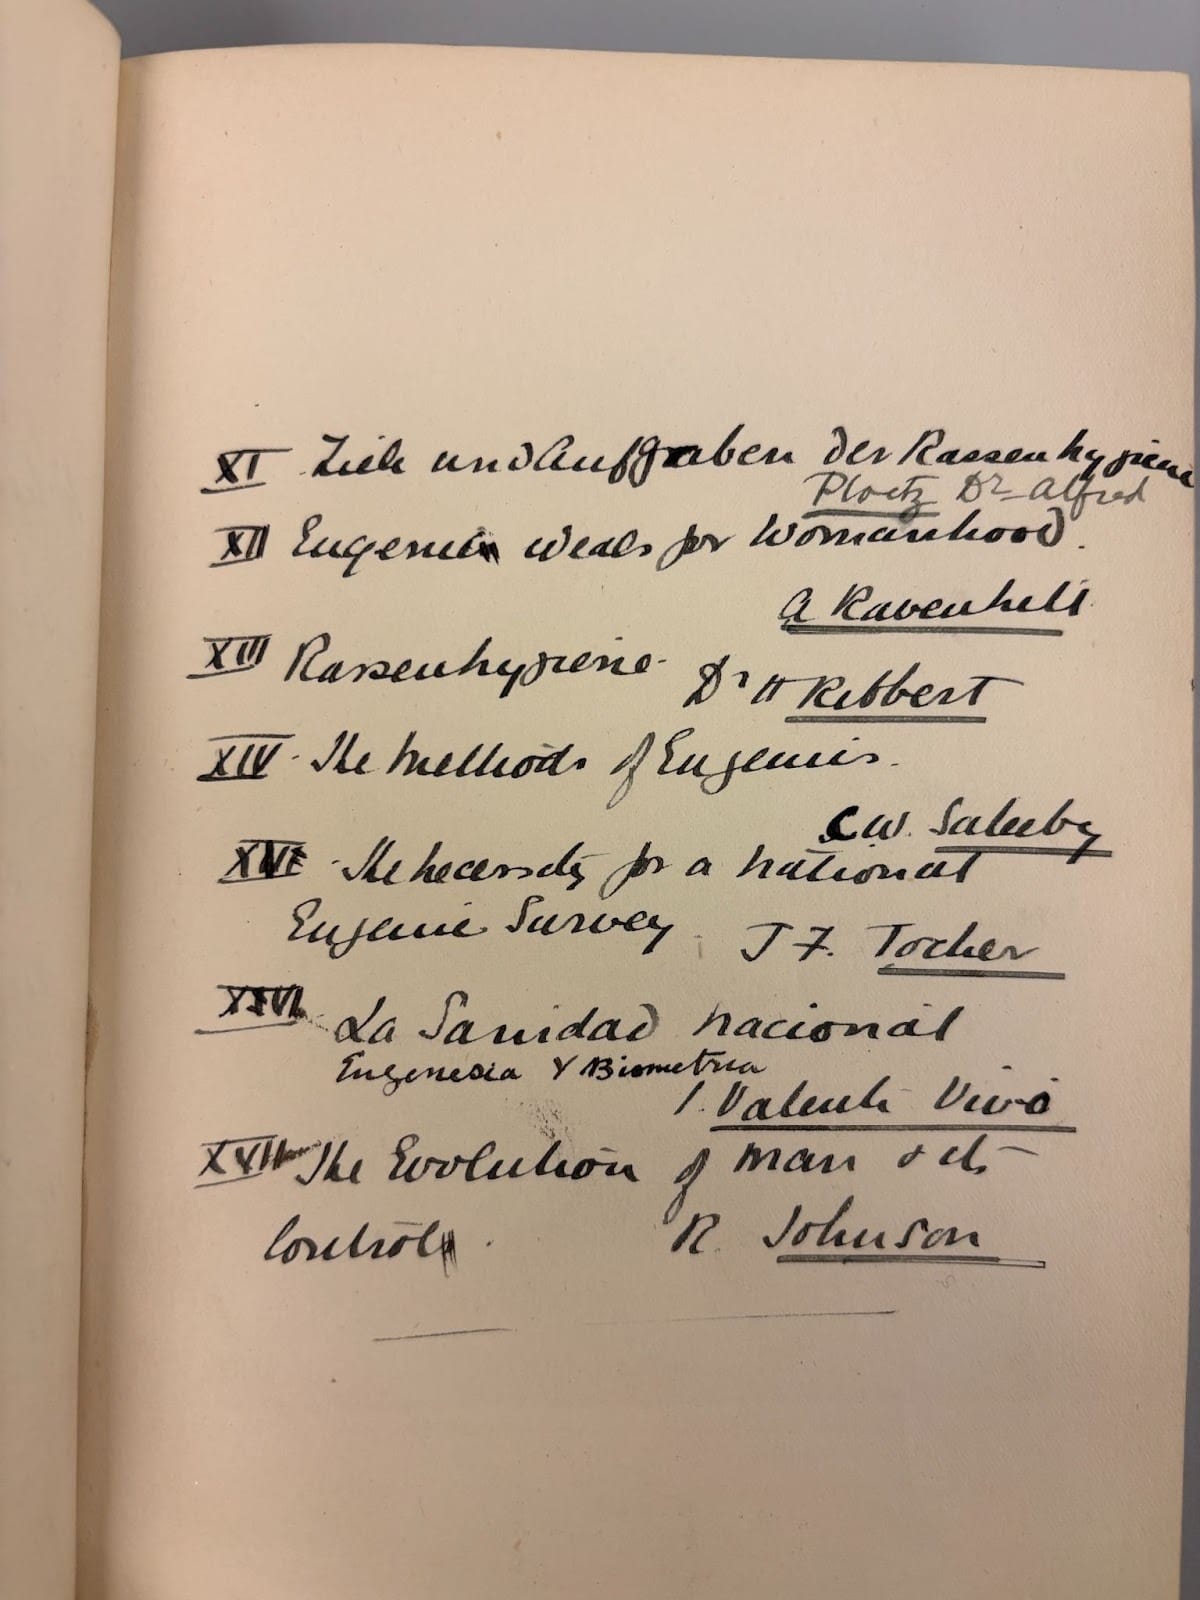 XI Ziele und Aufgaben der Rassenhygiene
Ploetz Dr Alfred
XII Eugenic Ideals for Womanhood.
A Ravenhill
XIII Rassenhygiene.
Dr H Ribbert
XIV. The Methods of Eugenics.
C W. Saleeby
XV. The necessity for a national
Eugenic Survey J F. Tocher
XVI La Sanidad nacional
Eugenesia Y Biometria
I. Valenti Vivo
XVII The Evolution of man & its
Control. R. Johnson